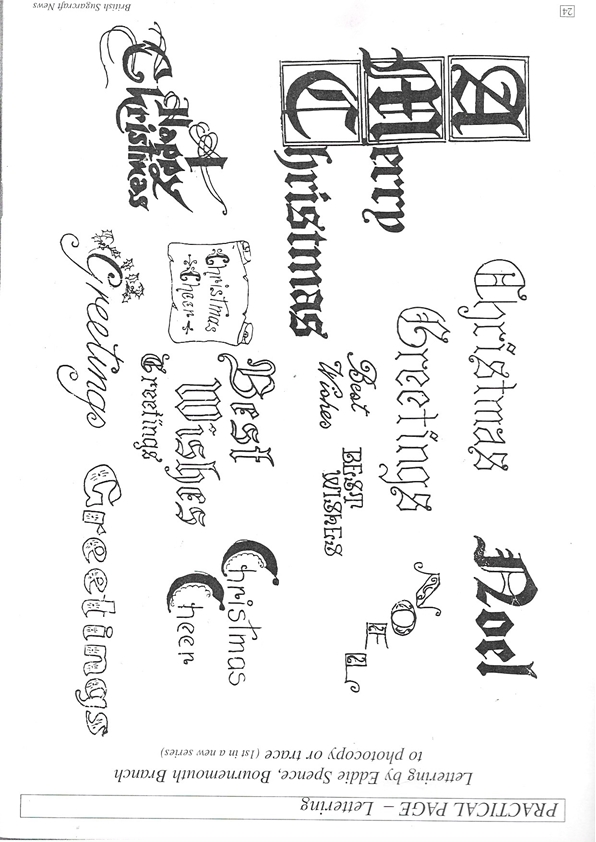 PRACTICAL PAGE – Lettering
Lettering by Eddie Spence, Bournemouth Branch
to photocopy or trace (1st in a new series)
A
Merry
Christmas
Christmas
Greetings
Noel
Best
Wishes
BEST
WISHES
NOEL
Happy
Christmas
Christmas
Cheer
Best
Wishes
Greetings
Christmas
Cheer
Greetings
Greetings
24
British Sugarcraft News